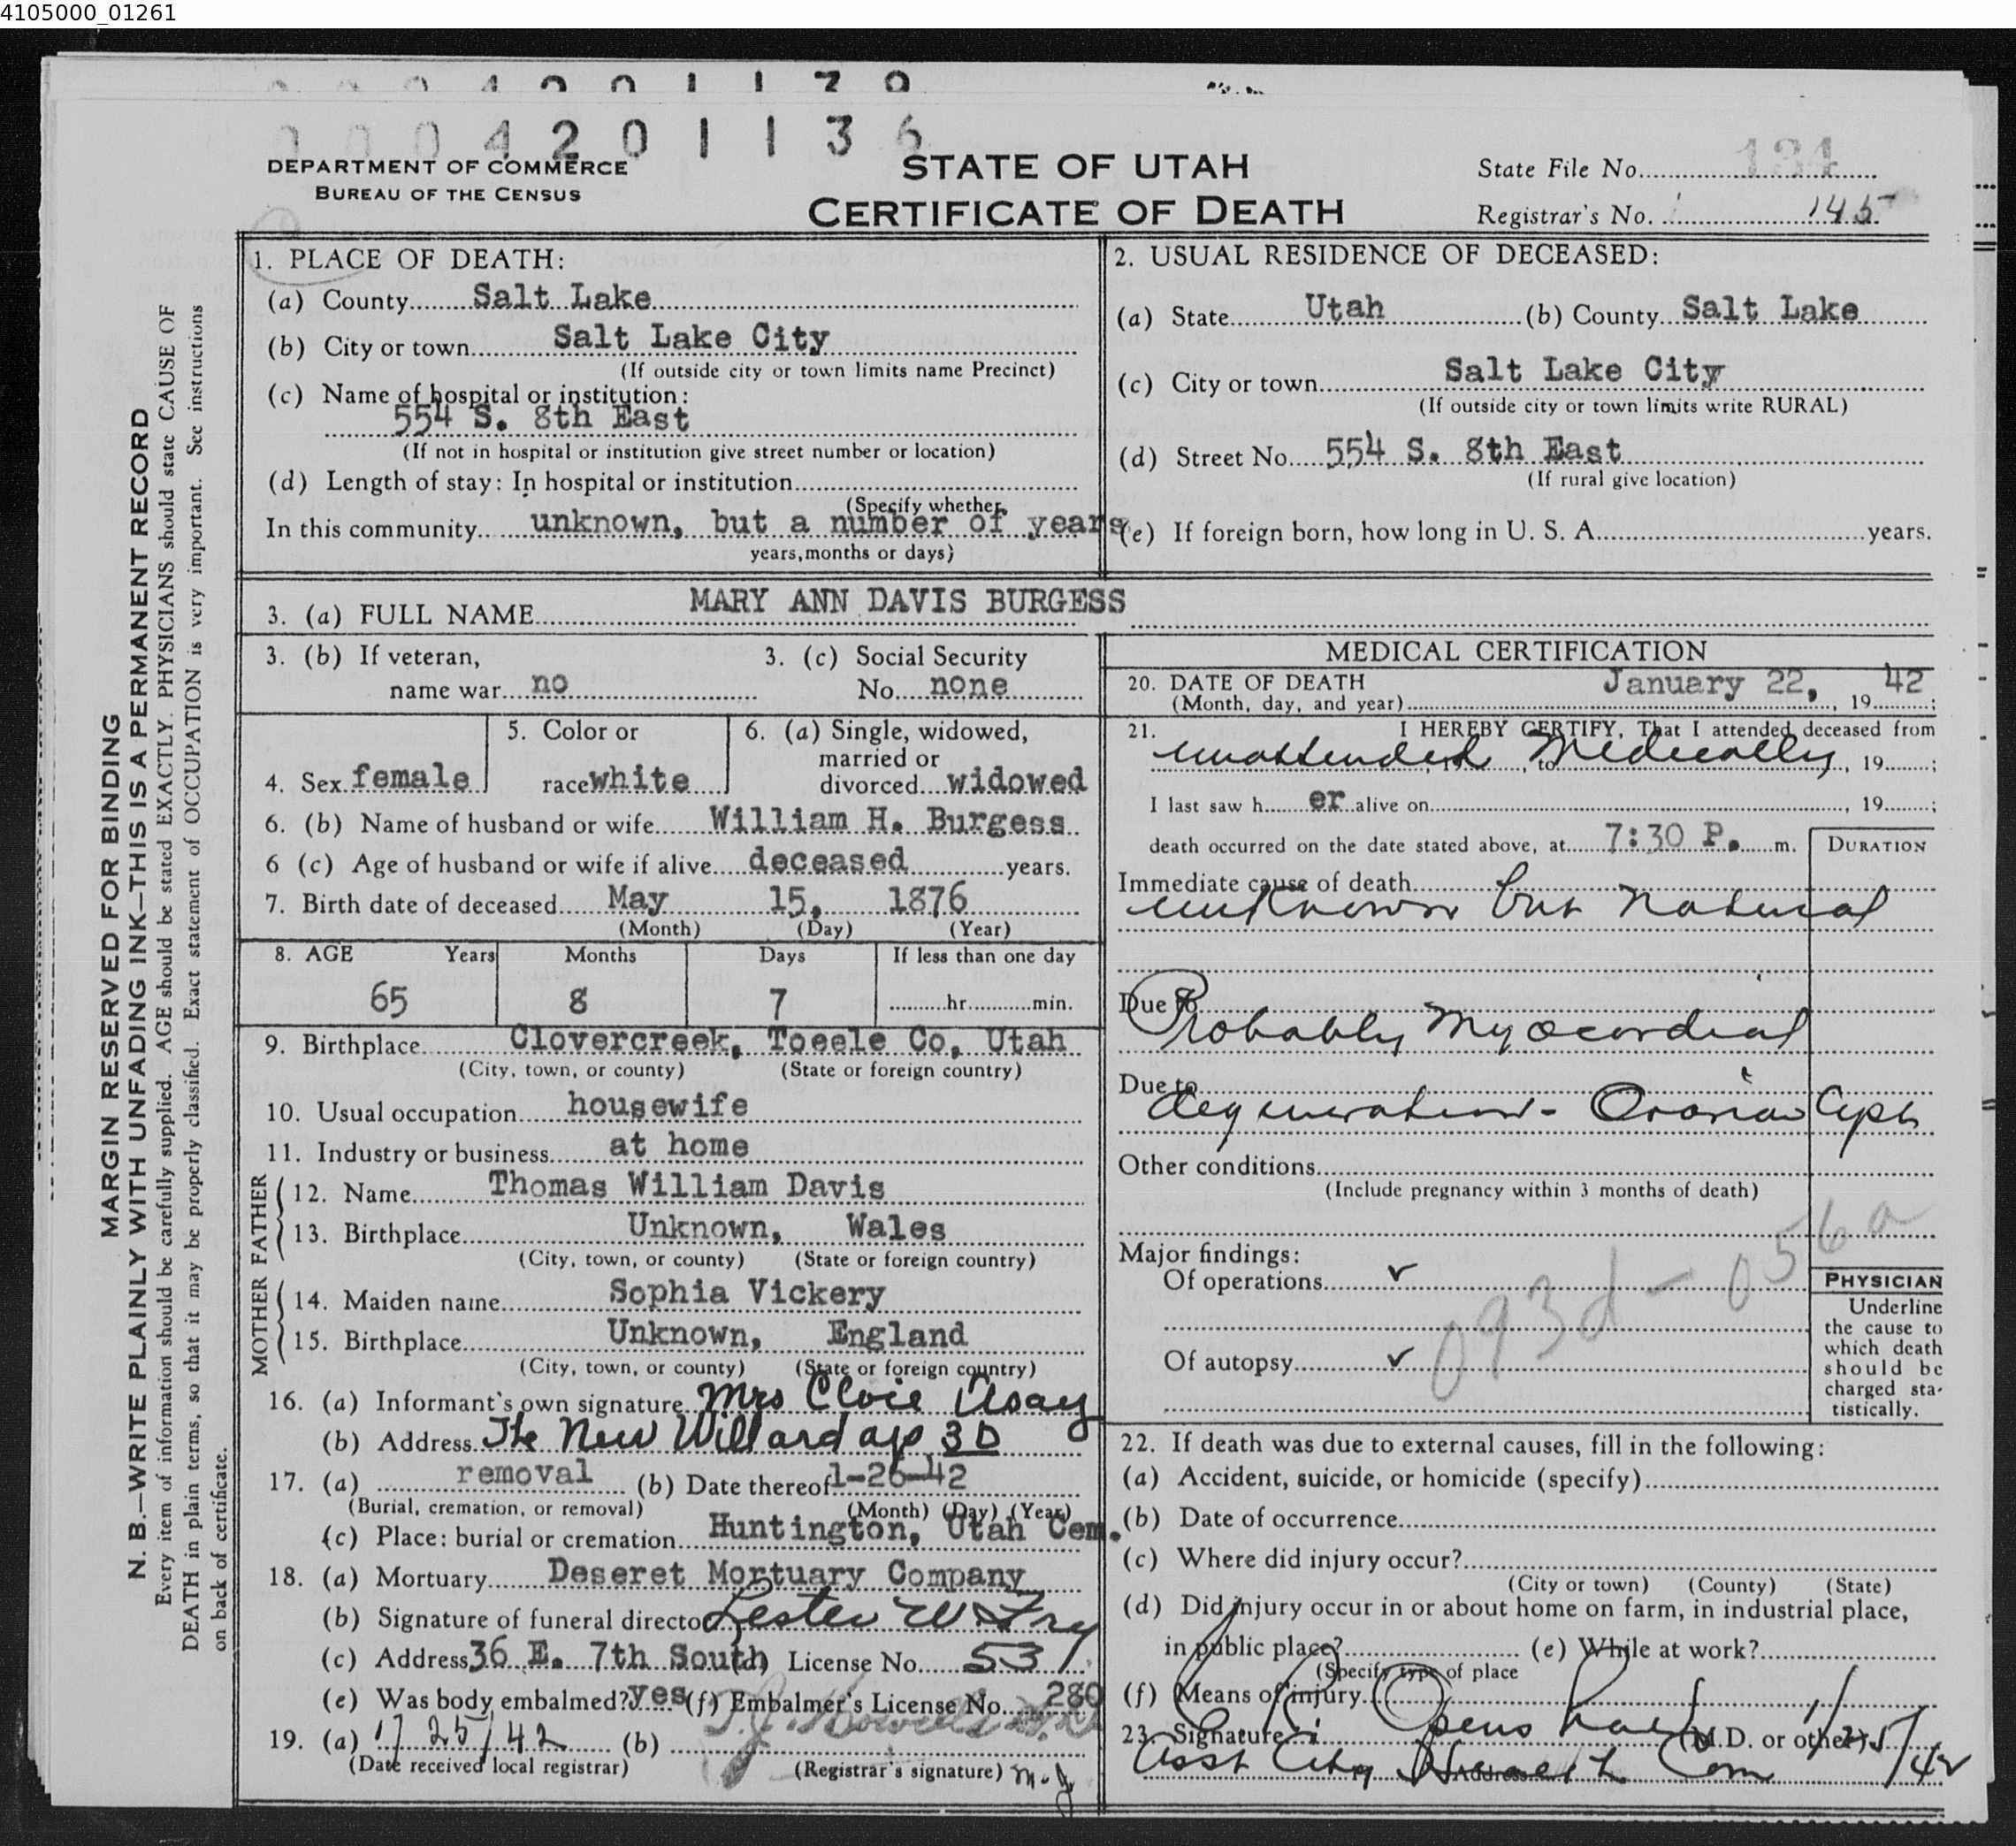 4105000_01261
0004201136
DEPARTMENT OF COMMERCE
BUREAU OF THE CENSUS
STATE OF UTAH
CERTIFICATE OF DEATH
State File No. 134
Registrar's No. 145
1. PLACE OF DEATH:
(a) County Salt Lake
(b) City or town Salt Lake City
(If outside city or town limits name Precinct)
(c) Name of hospital or institution:
554 S. 8th East
(If not in hospital or institution give street number or location)
(d) Length of stay: In hospital or institution
(Specify whether,
In this community unknown, but a number of years
years, months or days)
2. USUAL RESIDENCE OF DECEASED:
(a) State Utah (b) County Salt Lake
(c) City or town Salt Lake City
(If outside city or town limits write RURAL)
(d) Street No. 554 S. 8th East
(If rural give location)
(e) If foreign born, how long in U. S. A. years.
3. (a) FULL NAME MARY ANN DAVIS BURGESS
3. (b) If veteran,
name war no
3. (c) Social Security
No. none
4. Sex female
5. Color or
race white
6. (a) Single, widowed,
married or
divorced widowed
6. (b) Name of husband or wife William H. Burgess
6 (c) Age of husband or wife if alive deceased years.
7. Birth date of deceased May 15, 1876
(Month) (Day) (Year)
8. AGE Years Months Days If less than one day
65 8 7 hr. min.
9. Birthplace Clovercreek, Toeele Co, Utah
(City, town, or county) (State or foreign country)
10. Usual occupation housewife
11. Industry or business at home
FATHER
12. Name Thomas William Davis
13. Birthplace Unknown, Wales
(City, town, or county) (State or foreign country)
MOTHER
14. Maiden name Sophia Vickery
15. Birthplace Unknown, England
(City, town, or county) (State or foreign country)
16. (a) Informant's own signature Mrs Cloie Asay
(b) Address The New Willard ap 3D
17. (a) removal (b) Date thereof 1-26-42
(Burial, cremation, or removal) (Month) (Day) (Year)
(c) Place: burial or cremation Huntington, Utah Cem.
18. (a) Mortuary Deseret Mortuary Company
(b) Signature of funeral director Lester W
(c) Address 36 E. 7th South (d) License No. 531
(e) Was body embalmed? yes (f) Embalmer's License No. 280
19. (a) 1/25/42 (b)
(Date received local registrar) (Registrar's signature)
MEDICAL CERTIFICATION
20. DATE OF DEATH
(Month, day, and year) January 22, 19 42;
21. I HEREBY CERTIFY, That I attended deceased from
unattended, 19 , to Medically, 19 ;
I last saw h er alive on , 19 ;
death occurred on the date stated above, at 7:30 P. m.
DURATION
Immediate cause of death
unknown but natural
Due to
Probably Myocardial
Due to
degeneration - Ovarian
Other conditions
(Include pregnancy within 3 months of death)
Major findings:
Of operations ✓
Of autopsy ✓
093d - 056a
PHYSICIAN
Underline
the cause to
which death
should be
charged sta-
tistically.
22. If death was due to external causes, fill in the following:
(a) Accident, suicide, or homicide (specify)
(b) Date of occurrence
(c) Where did injury occur?
(City or town) (County) (State)
(d) Did injury occur in or about home on farm, in industrial place,
in public place? (e) While at work?
(Specify type of place
(f) Means of injury
23. Signature (M.D. or other) 1/25/42
Asst City Health Com
Address
MARGIN RESERVED FOR BINDING
N. B.—WRITE PLAINLY WITH UNFADING INK—THIS IS A PERMANENT RECORD
Every item of information should be carefully supplied. AGE should be stated EXACTLY. PHYSICIANS should state CAUSE OF
DEATH in plain terms, so that it may be properly classified. Exact statement of OCCUPATION is very important. See instructions
on back of certificate.